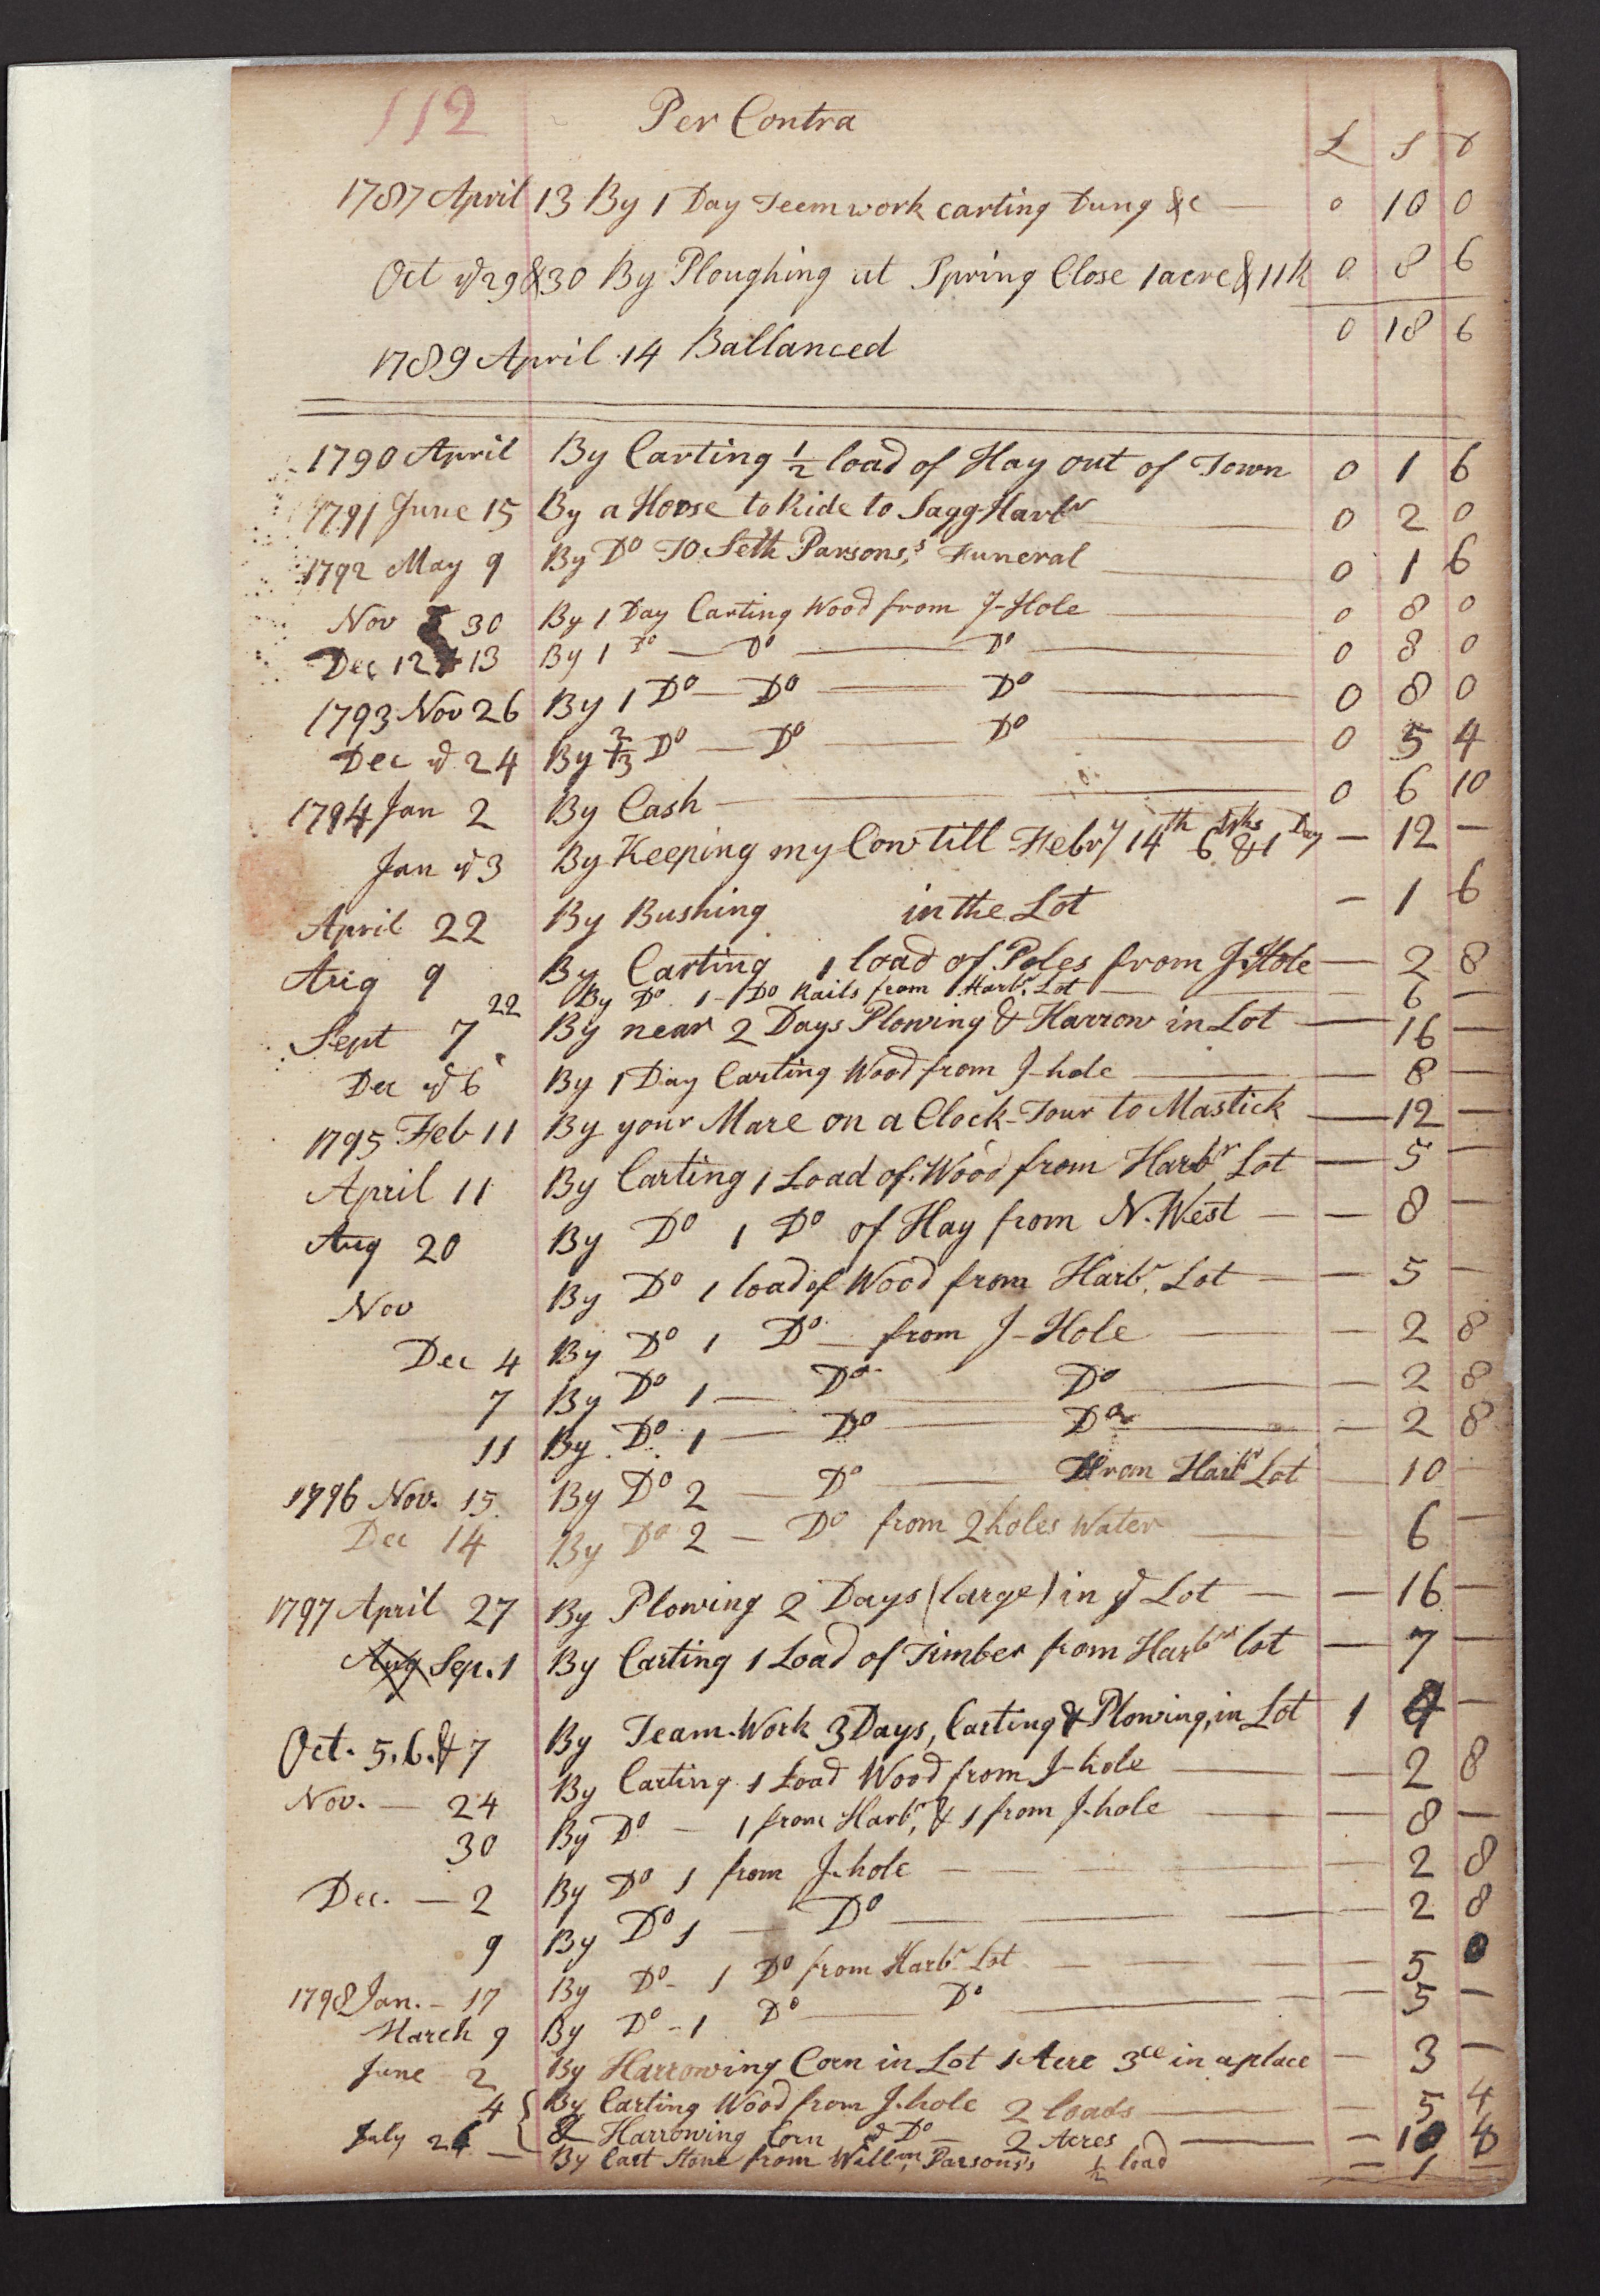 112 Per Contra
£ S D
1787 April 13 By 1 Day Teem work carting Dung &c — 0 10 0
Oct ye 29 & 30 By Ploughing at Spring Close 1 acre & 11 R 0 8 6
0 18 6
1789 April 14 Ballanced
1790 April By Carting 1/2 load of Hay out of Town 0 1 6
1791 June 15 By a Horse to Ride to Sagg-Harbr — 0 2 0
1792 May 9 By Do To Seth Parsons,s Funeral — 0 1 6
Nov 30 By 1 Day Carting Wood from J-Hole — 0 8 0
Dec 12 & 13 By 1 Do — Do — Do — 0 8 0
1793 Nov 26 By 1 Do — Do — Do — 0 8 0
Dec ye 24 By 2/3 Do — Do — Do — 0 5 4
1794 Jan 2 By Cash — 0 6 10
Jan ye 3 By Keeping my Cow till Febry 14th 6 Wks & 1 Day — 12 —
April 22 By Bushing in the Lot — 1 6
Aug 9 By Carting 1 load of Poles from J-Hole — 2 8
22 By Do 1 Do Rails from Harbr Lot — 6 —
Sept 7 By near 2 Days Plowing & Harrow in Lot — 16 —
Dec ye 6 By 1 Day Carting Wood from J-hole — 8 —
1795 Feb 11 By your Mare on a Clock-Tour to Mastick — 12 —
April 11 By Carting 1 Load of Wood from Harbr Lot — 5 —
Aug 20 By Do 1 Do of Hay from N. West — — 8 —
Nov By Do 1 load of Wood from Harbr Lot — — 5 —
Dec 4 By Do 1 Do — from J-Hole — — 2 8
7 By Do 1 — Do — Do — — 2 8
11 By Do 1 — Do — Do — — 2 8
1796 Nov. 15 By Do 2 — Do — From Harbr Lot — 10 —
Dec 14 By Do 2 — Do from 2 holes Water — — 6 —
1797 April 27 By Plowing 2 Days (large) in ye Lot — — 16 —
Aug Sep. 1 By Carting 1 Load of Timber from Harbr lot — 7 —
Oct. 5. 6. & 7 By Team-Work 3 Days, Carting & Plowing, in Lot 1 4 —
Nov. — 24 By Carting 1 Load Wood from J-hole — — 2 8
30 By Do — 1 from Harbr, & 1 from J-hole — — 8 —
Dec. — 2 By Do 1 from J-hole — — 2 8
9 By Do 1 — Do — — 2 8
1798 Jan. — 17 By Do - 1 Do from Harbr Lot — — 5 0
March 9 By Do - 1 Do — Do — — 5 —
June 2 By Harrowing Corn in Lot 1 Acre 3ce in a place — 3 —
4 { By Carting Wood from J-hole 2 loads — — 5 4
& Harrowing Corn ye Do — 2 Acres — — 10 8
July 26 — By Cart Stone from Willm Parsons's 1/2 load — 1 —